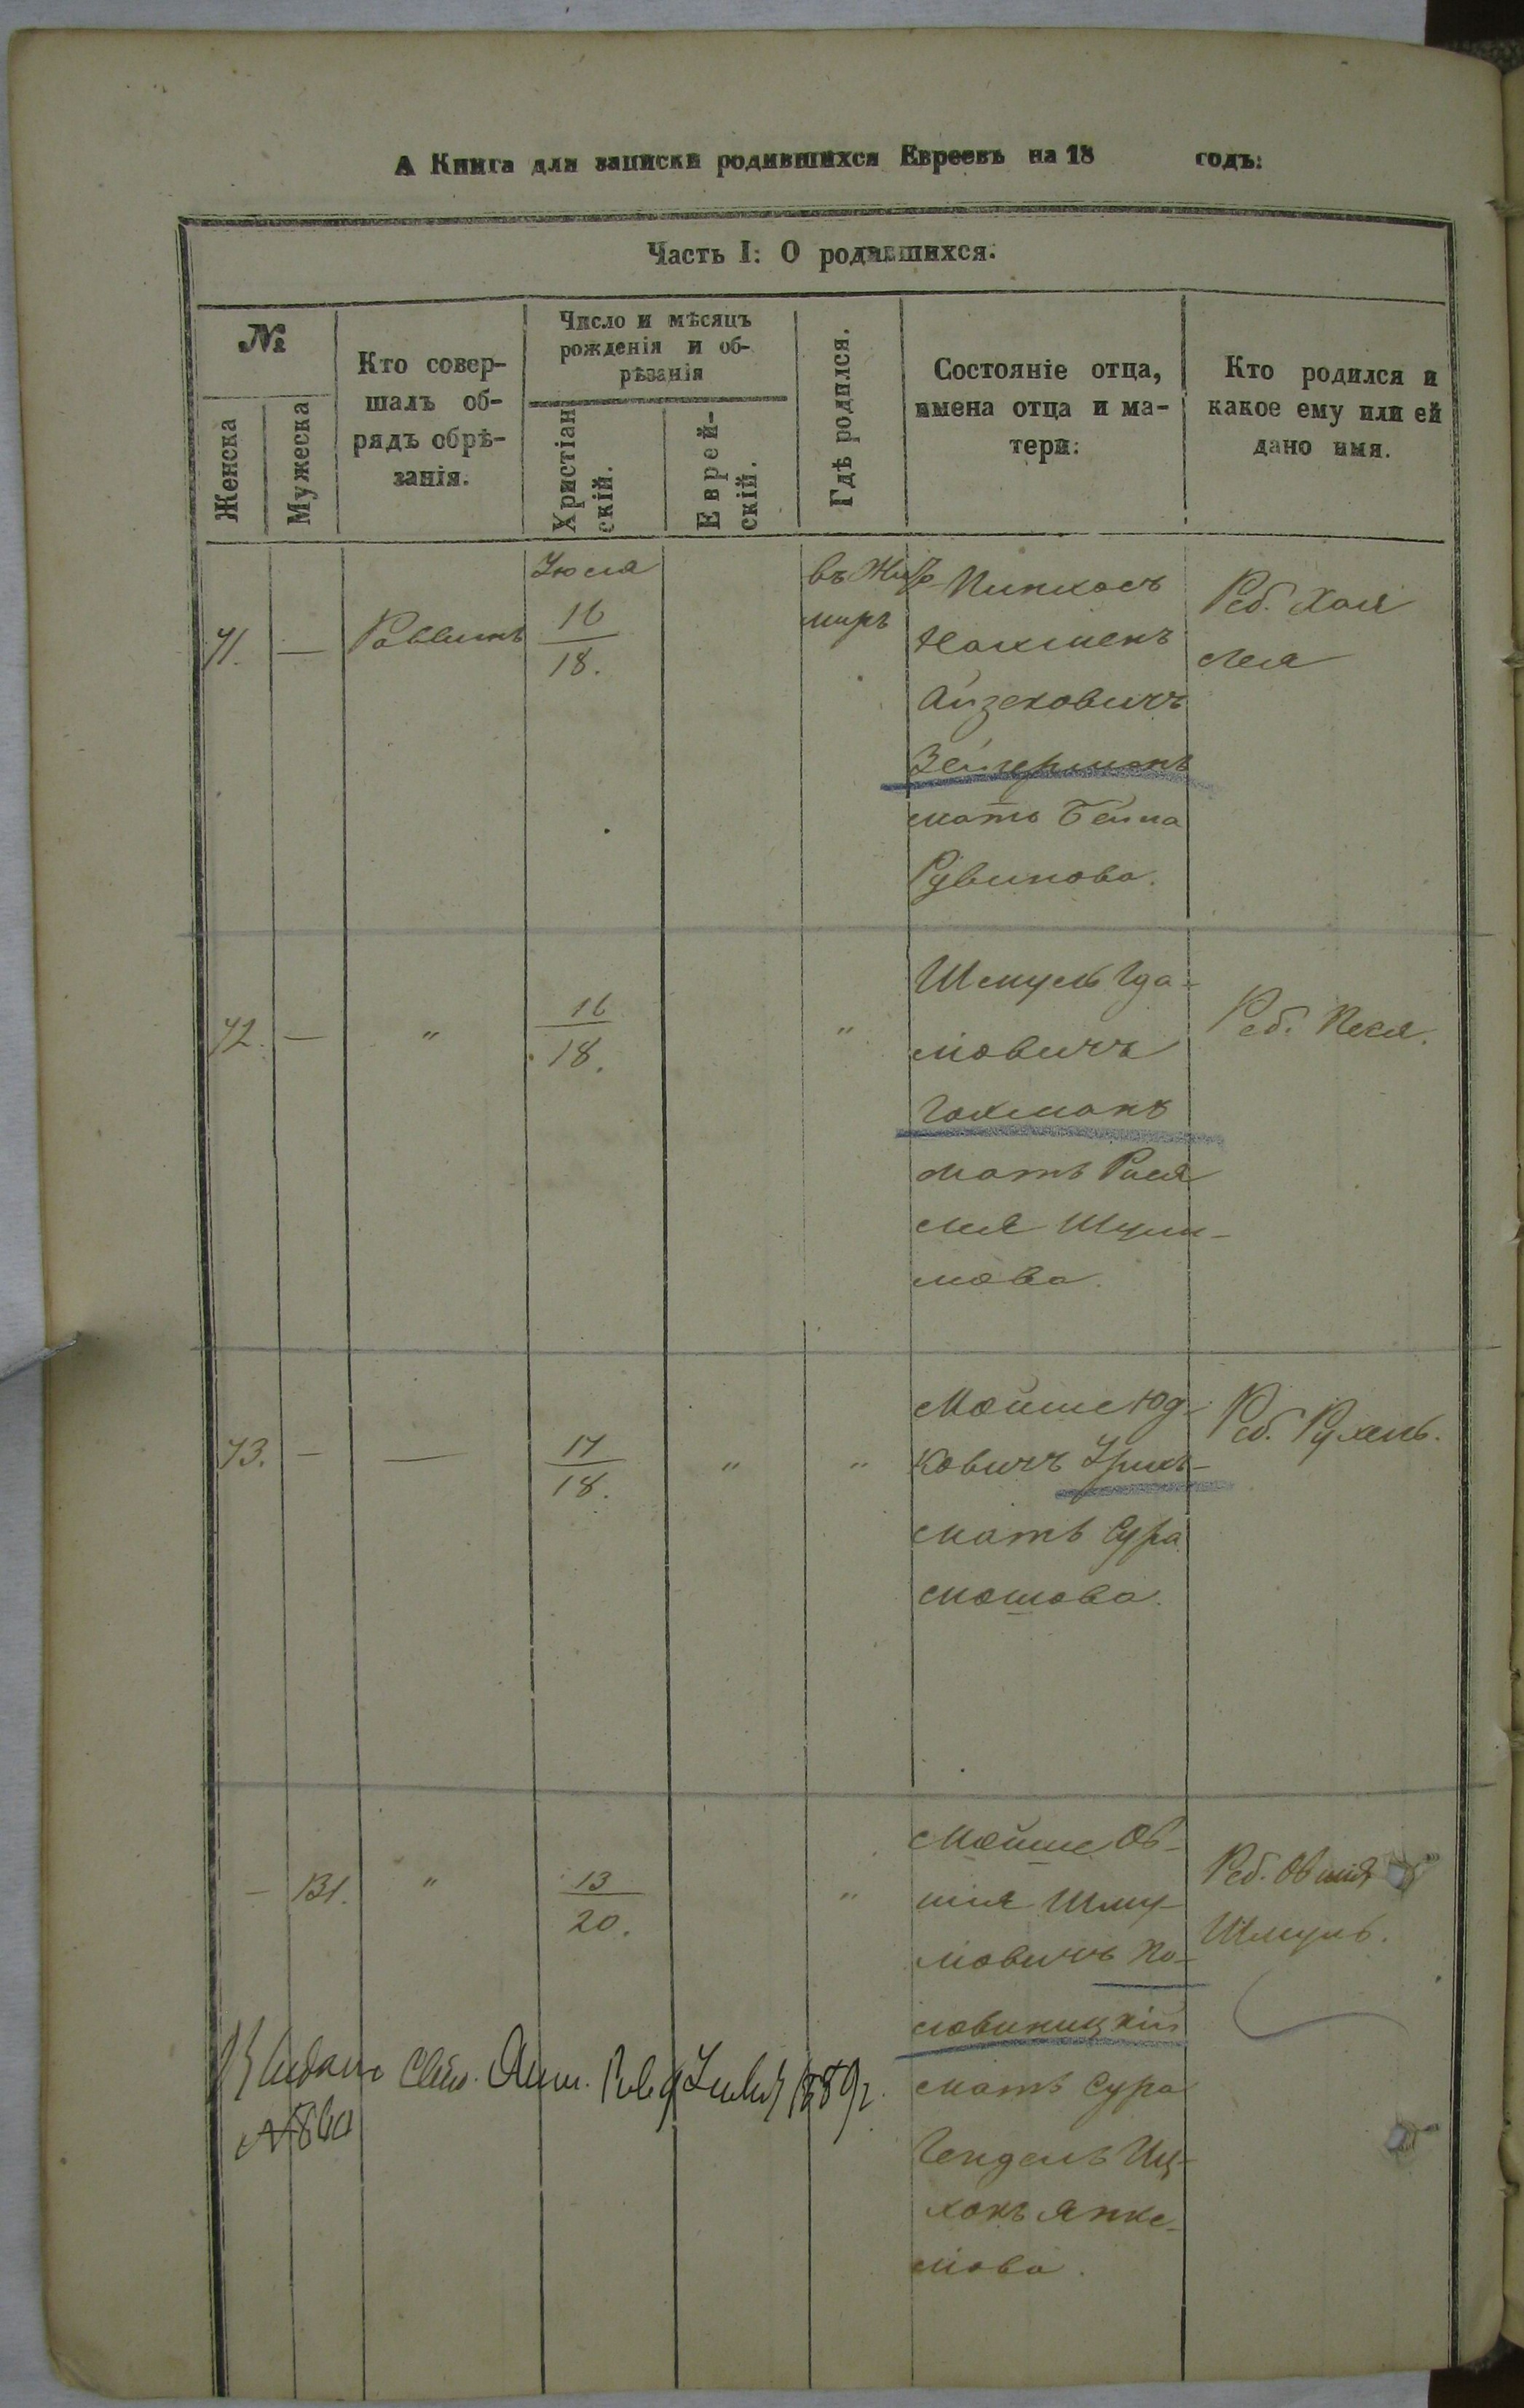 А Книга для записки родившихся Евреевъ на 18 годъ:
Часть I: О родившихся.
№
Женска
Мужеска
Кто совер-
шалъ об-
рядъ обрѣ-
занія.
Число и мѣсяцъ
рожденія и об-
рѣзанія
Христіан
скій.
Еврей-
скій.
Гдѣ родился.
Состояніе отца,
имена отца и ма-
тери:
Кто родился и
какое ему или ей
дано имя.
71.
—
Раввинъ
16
18.
въ Жито
миръ
Пинхасъ
Нахманъ
Айзековичъ
Зейгерманъ
мать Бейла
Рувинова.
Реб. Хая
Лея
72.
—
"
16
18.
"
Шмуль Гда-
ліовичъ
Гахманъ
мать Рися
Лея
мова.
Реб. Песя.
73.
—
—
17
18.
"
"
Мойше Юд-
ковичъ
мать Сура
Мошова.
Реб. Рухель.
—
131.
"
13
20.
"
Мойше Ов-
шія Шму-
ліовичъ По-
ловиницкій
мать Сура
Гендель Иц-
хокъ Янке-
ліова.
Реб. Овшія
Шмуль.
Видано Свид. 1889г.
№860